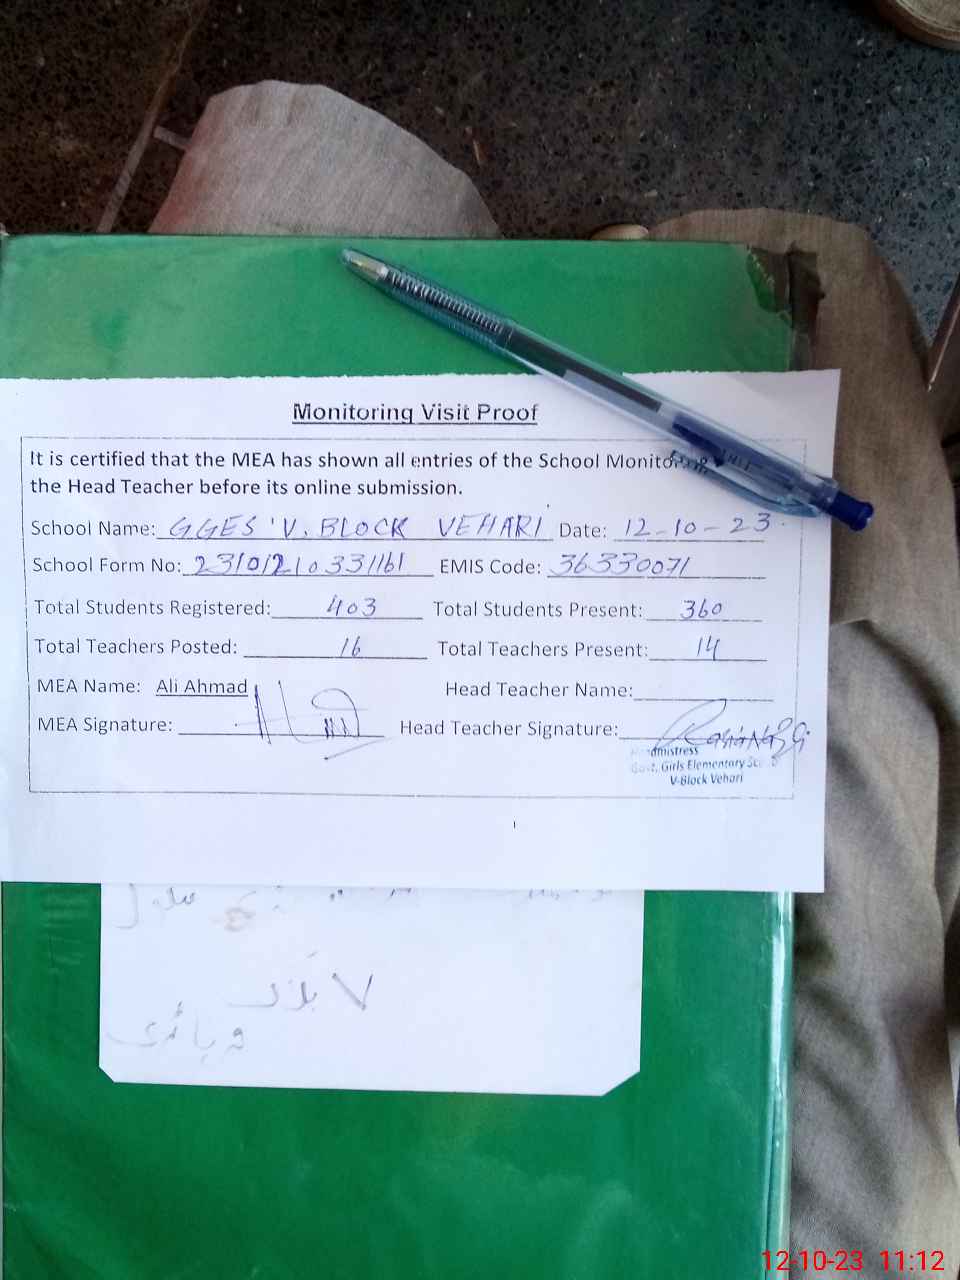 Monitoring Visit Proof
It is certified that the MEA has shown all entries of the School
the Head Teacher before its online submission.
School Name: GGES V. BLOCK VEHARI Date: 12-10-23
School Form No: EMIS Code: 36330071
Total Students Registered: 403 Total Students Present: 360
Total Teachers Posted: 16 Total Teachers Present: 14
MEA Name: Ali Ahmad Head Teacher Name:
MEA Signature: Head Teacher Signature:
Govt. Girls Elementary
V-Block Vehari
وہاڑی
12-10-23 11:12